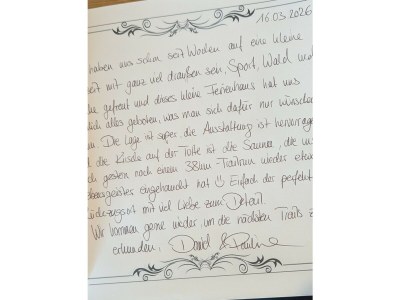 16.03.2026
haben uns schon seit Wochen auf eine kleine
zeit mit ganz viel draußen sein, Sport, Wald und
he gefreut und dieses kleine Ferienhaus hat uns
lich alles geboten, was man sich dafür nur wünschen
n. Die Lage ist super, die Ausstattung ist hervorragen
d die Kirsche auf der Torte ist die Sauna, die un
ch gestern nach einem 38km-Trailrun wieder etwas
ebensgeister eingehaucht hat Einfach der perfekte
ückzugsort mit viel Liebe zum Detail.
Wir kommen gerne wieder, um die nächsten Trails z
erkunden, David & Pauline